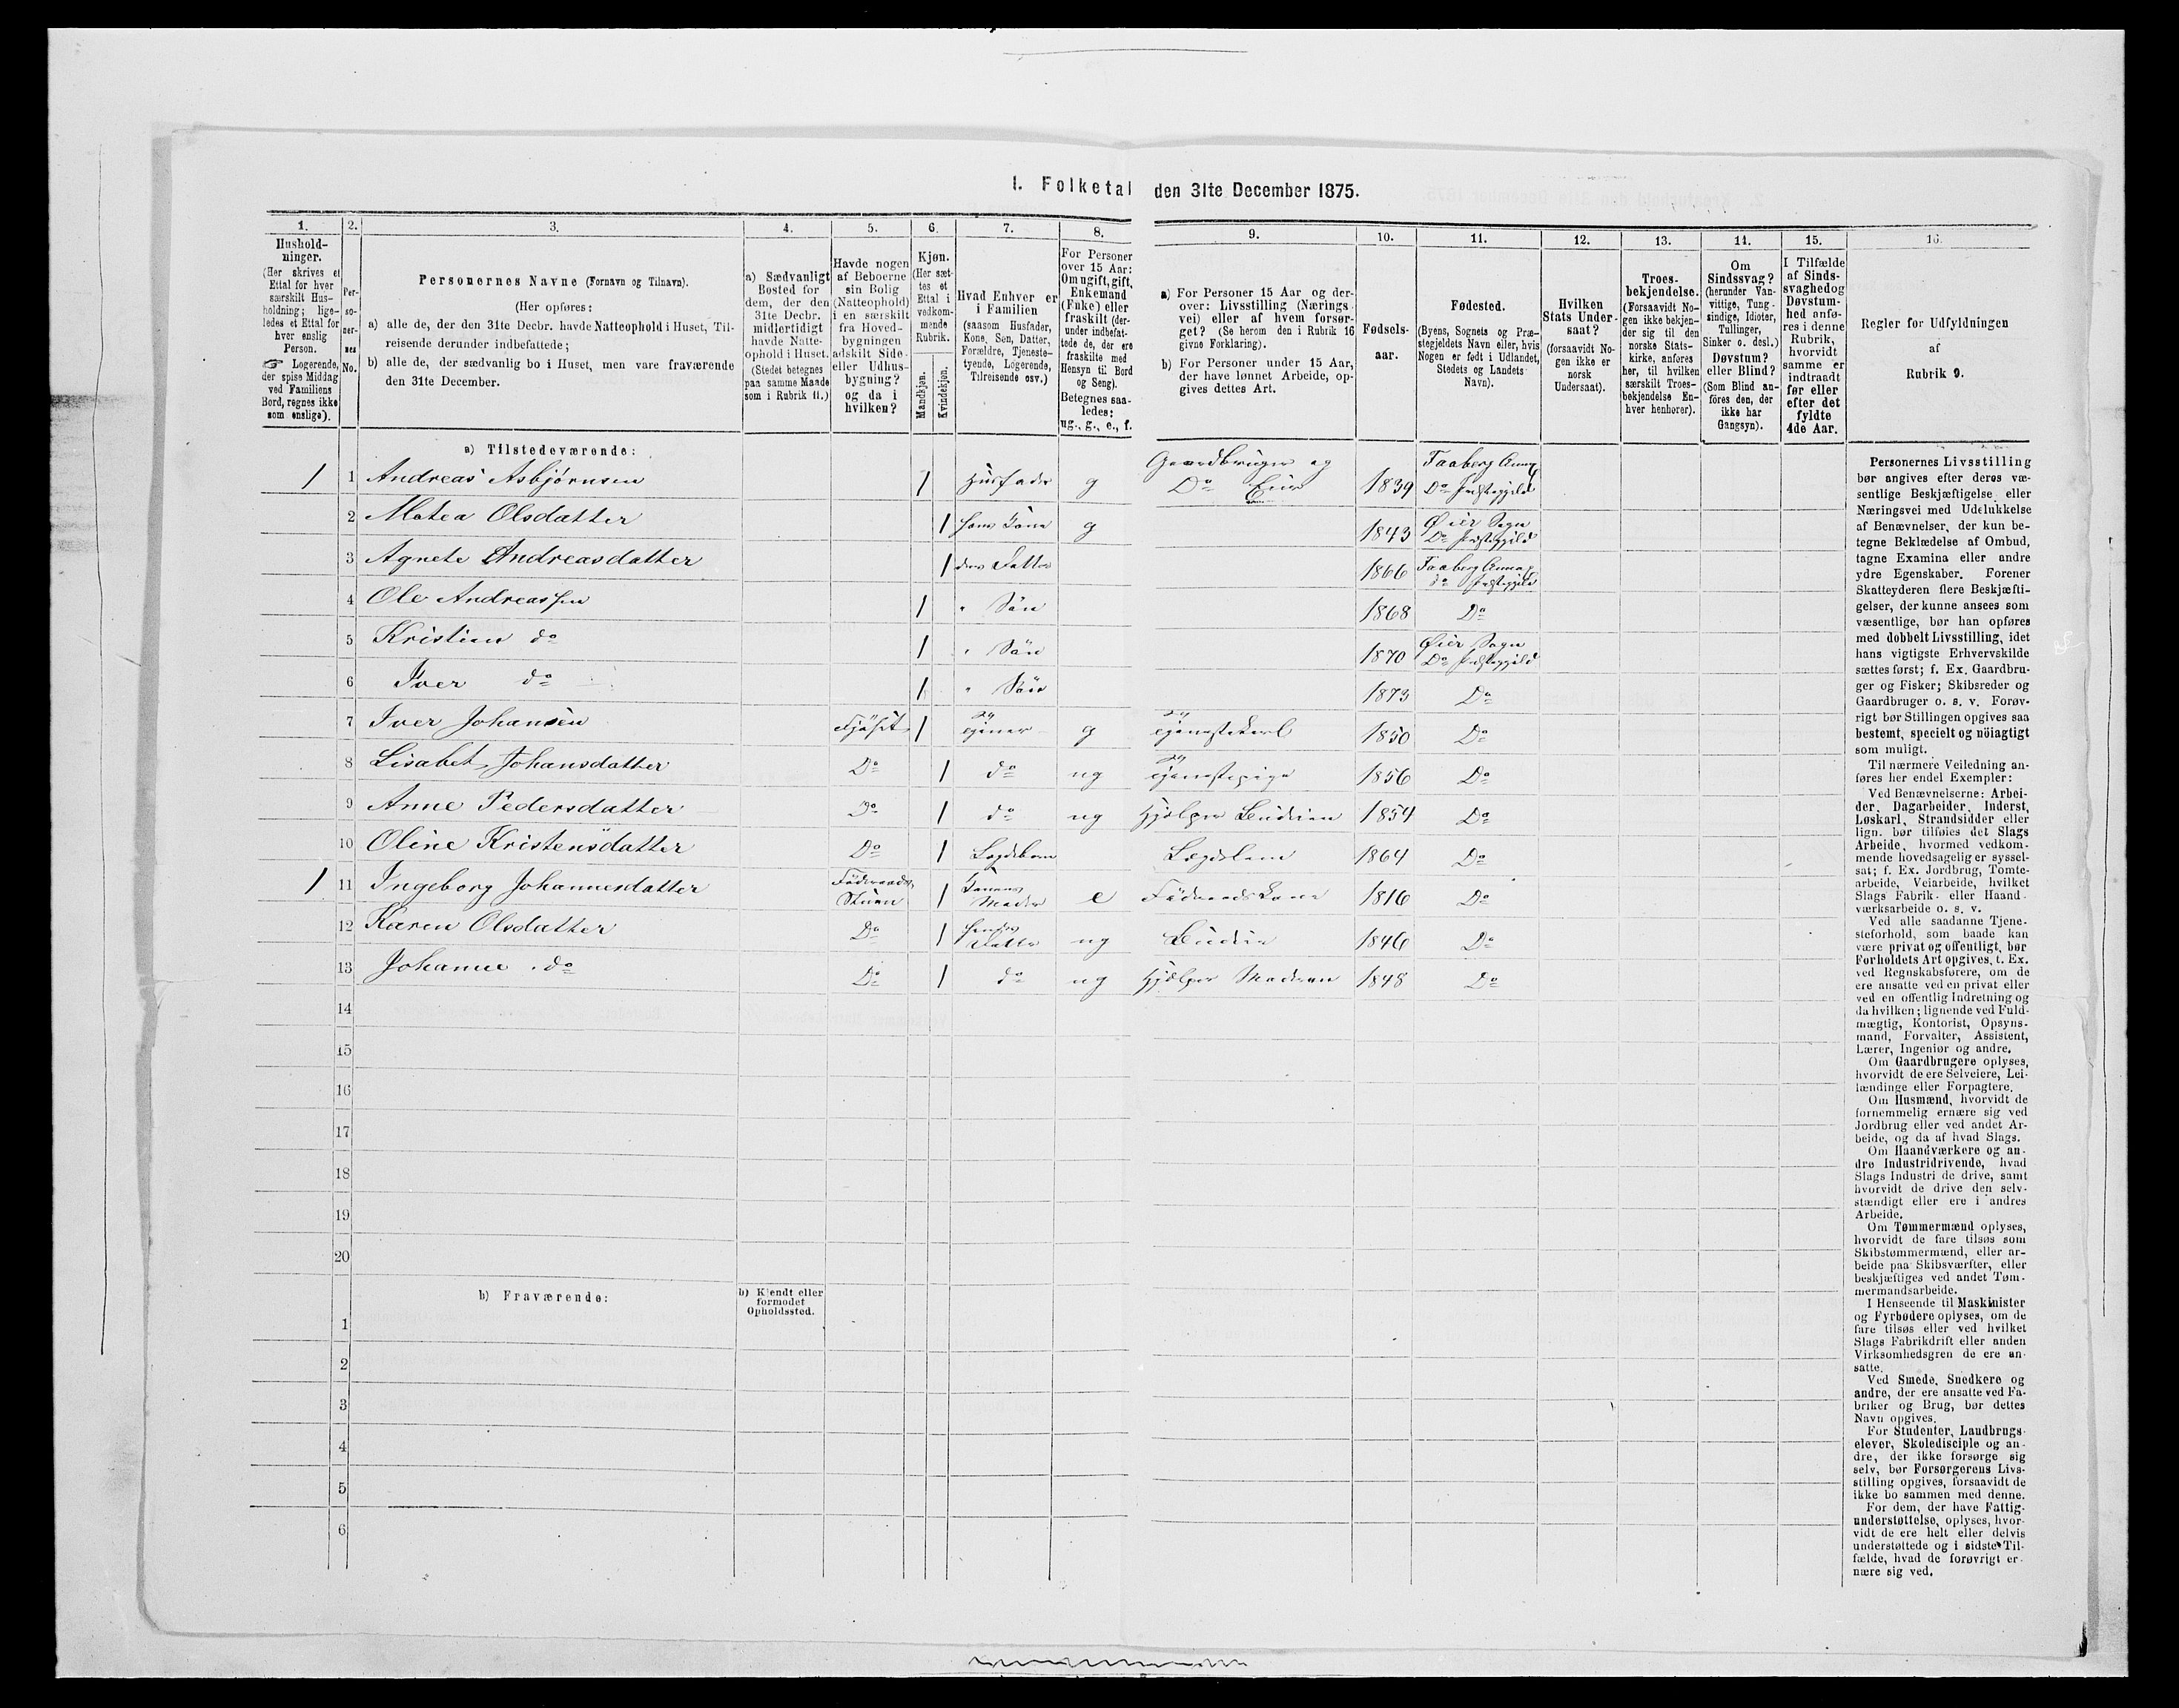 1. Folketal den 31te December 1875.
1.
2.
3.
4.
5.
6.
7.
8.
9.
10.
11.
12.
13.
14.
15.
16.
Hushold-
ninger.
(Her skrives et
Ettal for hver
særskilt Hus-
holdning; lige-
ledes et Ettal for
hver enslig
Person.
☞ Logerende,
der spise Middag
ved Familiens
Bord, regnes ikke
som enslige).
Per-
so-
ner-
nes
No.
Personernes Navne (Fornavn og Tilnavn).
(Her opføres:
a) alle de, der den 31te Decbr. havde Natteophold i Huset, Til-
reisende derunder indbefattede;
b) alle de, der sædvanlig bo i Huset, men vare fraværende
den 31te December.
a) Sædvanligt
Bosted for
dem, der den
31te Decbr.
midlertidigt
havde Natte-
ophold i Huset.
(Stedet betegnes
paa samme Maade
som i Rubrik 11.)
Havde nogen
af Beboerne
sin Bolig
(Natteophold)
i en særskilt
fra Hoved-
bygningen
adskilt Side-
eller Udhus-
bygning?
og da i
hvilken?
Kjøn.
(Her sæt-
tes et
Ettal i
vedkom-
mende
Rubrik.
Mandkjøn.
Kvindekjøn.
Hvad Enhver er
i Familien
(saasom Husfader,
Kone, Søn, Datter,
Forældre, Tjeneste-
tyende, Logerende,
Tilreisende osv.)
For Personer
over 15 Aar:
Om ugift, gift,
Enkemand
(Enke) eller
fraskilt (der-
under indbefat-
tede de, der ere
fraskilte med
Hensyn til Bord
og Seng).
Betegnes saa-
ledes:
ug., g., e., f.
a) For Personer 15 Aar og der-
over: Livsstilling (Nærings-
vei) eller af hvem forsør-
get? (Se herom den i Rubrik 16
givne Forklaring).
b) For Personer under 15 Aar,
der have lønnet Arbeide, op-
gives dettes Art.
Fødsels-
aar.
Fødested.
(Byens, Sognets og Præ-
stegjeldets Navn eller, hvis
Nogen er født i Udlandet,
Stedets og Landets
Navn).
Hvilken
Stats Under-
saat?
(forsaavidt No-
gen ikke er
norsk
Undersaat).
Troes-
bekjendelse.
(Forsaavidt No-
gen ikke bekjen-
der sig til den
norske Stats-
kirke, anføres
her, til hvilken
særskilt Troes-
bekjendelse En-
hver henhører).
Om
Sindssvag?
(herunder Van-
vittige, Tung-
sindige, Idioter,
Tullinger,
Sinker o. desl.)
Døvstum?
eller Blind?
(Som Blind an-
føres den, der
ikke har
Gangsyn).
I Tilfælde
af Sinds-
svaghed og
Døvstum-
hed anfø-
res i denne
Rubrik,
hvorvidt
samme er
indtraadt
før eller
efter det
fyldte
4de Aar.
Regler for Udfyldningen
af
Rubrik 9.
a) Tilstedeværende:
1 1 Andreas Asbjørnsen 1 Husfader g Gaardbruger og Do Eier 1839 Faaberg Annex Do Præstegjeld
2 Matea Olsdatter 1 hans Kone g 1843 Øier Sogn Do Præstegjeld
3 Agnete Andreasdatter 1 deres Datter 1866 Faaberg Annex do Præstegjeld
4 Ole Andreassen 1 " Sön 1868 Do
5 Kristian do 1 " Sön 1870 Øier Sogn Do Præstegjeld
6 Iver do 1 " Sön 1873 Do
7 Iver Johansen Fjöset 1 Tjener g Tjenestekarl 1850 Do
8 Lisabet Johansdatter Do 1 do ug Tjenestepige 1856 Do
9 Anne Pedersdatter Do 1 do ug Hjelper Budeien 1854 Do
10 Oline Kristensdatter Do 1 Legdebarn Lægdslem 1864 Do
1 11 Ingeborg Johannesdatter Föderaads Stuen 1 Konens Moder e Föderaadskone 1816 Do
12 Karen Olsdatter Do 1 hendes Datter ug Budeie 1846 Do
13 Johanne do Do 1 do ug Hjelper Moderen 1848 Do
14
15
16
17
18
19
20
b) Fraværende:
b) Kjendt eller
formodet
Opholdssted.
1
2
3
4
5
6
Personernes Livsstilling
bør angives efter deres væ-
sentlige Beskjæftigelse eller
Næringsvei med Udelukkelse
af Benævnelser, der kun be-
tegne Beklædelse af Ombud,
tagne Examina eller andre
ydre Egenskaber. Forener
Skatteyderen flere Beskjæfti-
gelser, der kunne ansees som
væsentlige, bør han opføres
med dobbelt Livsstilling, idet
hans vigtigste Erhvervskilde
sættes først; f. Ex. Gaardbru-
ger og Fisker; Skibsreder og
Gaardbruger o. s. v. Forøv-
rigt bør Stillingen opgives saa
bestemt, specielt og nöiagtigt
som muligt.
Til nærmere Veiledning an-
føres her endel Exempler:
Ved Benævnelserne: Arbei-
der, Dagarbeider, Inderst,
Løskarl, Strandsidder eller
lign. bør tilføies det Slags
Arbeide, hvormed vedkom-
mende hovedsagelig er syssel-
sat; f. Ex. Jordbrug, Tomte-
arbeide, Veiarbeide, hvilket
Slags Fabrik- eller Haand-
værksarbeide o. s. v.
Ved alle saadanne Tjene-
steforhold, som baade kan
være privat og offentligt, bør
Forholdets Art opgives, t. Ex.
ved Regnskabsførere, om de
ere ansatte ved en privat eller
ved en offentlig Indretning og
da hvilken; lignende ved Fuld-
mægtig, Kontorist, Opsyns-
mand, Forvalter, Assistent,
Lærer, Ingeniør og andre.
Om Gaardbrugere oplyses,
hvorvidt de ere Selveiere, Lei-
lændinge eller Forpagtere.
Om Husmænd, hvorvidt de
fornemmelig ernære sig ved
Jordbrug eller ved andet Ar-
beide, og da af hvad Slags.
Om Haandværkere og an-
dre Industridrivende, hvad
Slags Industri de drive, samt
hvorvidt de drive den selv-
stændigt eller ere i andres
Arbeide.
Om Tømmermænd oplyses,
hvorvidt de fare tilsøs som
Skibstømmermænd, eller ar-
beide paa Skibsværfter, eller
beskjæftiges ved andet Tøm-
mermandsarbeide.
I Henseende til Maskinister
og Fyrbødere oplyses, om de
fare tilsøs eller ved hvilket
Slags Fabrikdrift eller anden
Virksomhedsgren de ere an-
satte.
Ved Smede, Snedkere og
andre, der ere ansatte ved Fa-
briker og Brug, bør dettes
Navn opgives.
For Studenter, Landbrugs-
elever, Skoledisciple og an-
dre, der ikke forsørge sig
selv, bør Forsørgerens Livs-
stilling opgives, forsaavidt de
ikke bo sammen med denne.
For dem, der have Fattig-
understøttelse, oplyses, hvor-
vidt de ere helt eller delvis
understøttede og i sidste Til-
fælde, hvad de forøvrigt er-
nære sig ved.